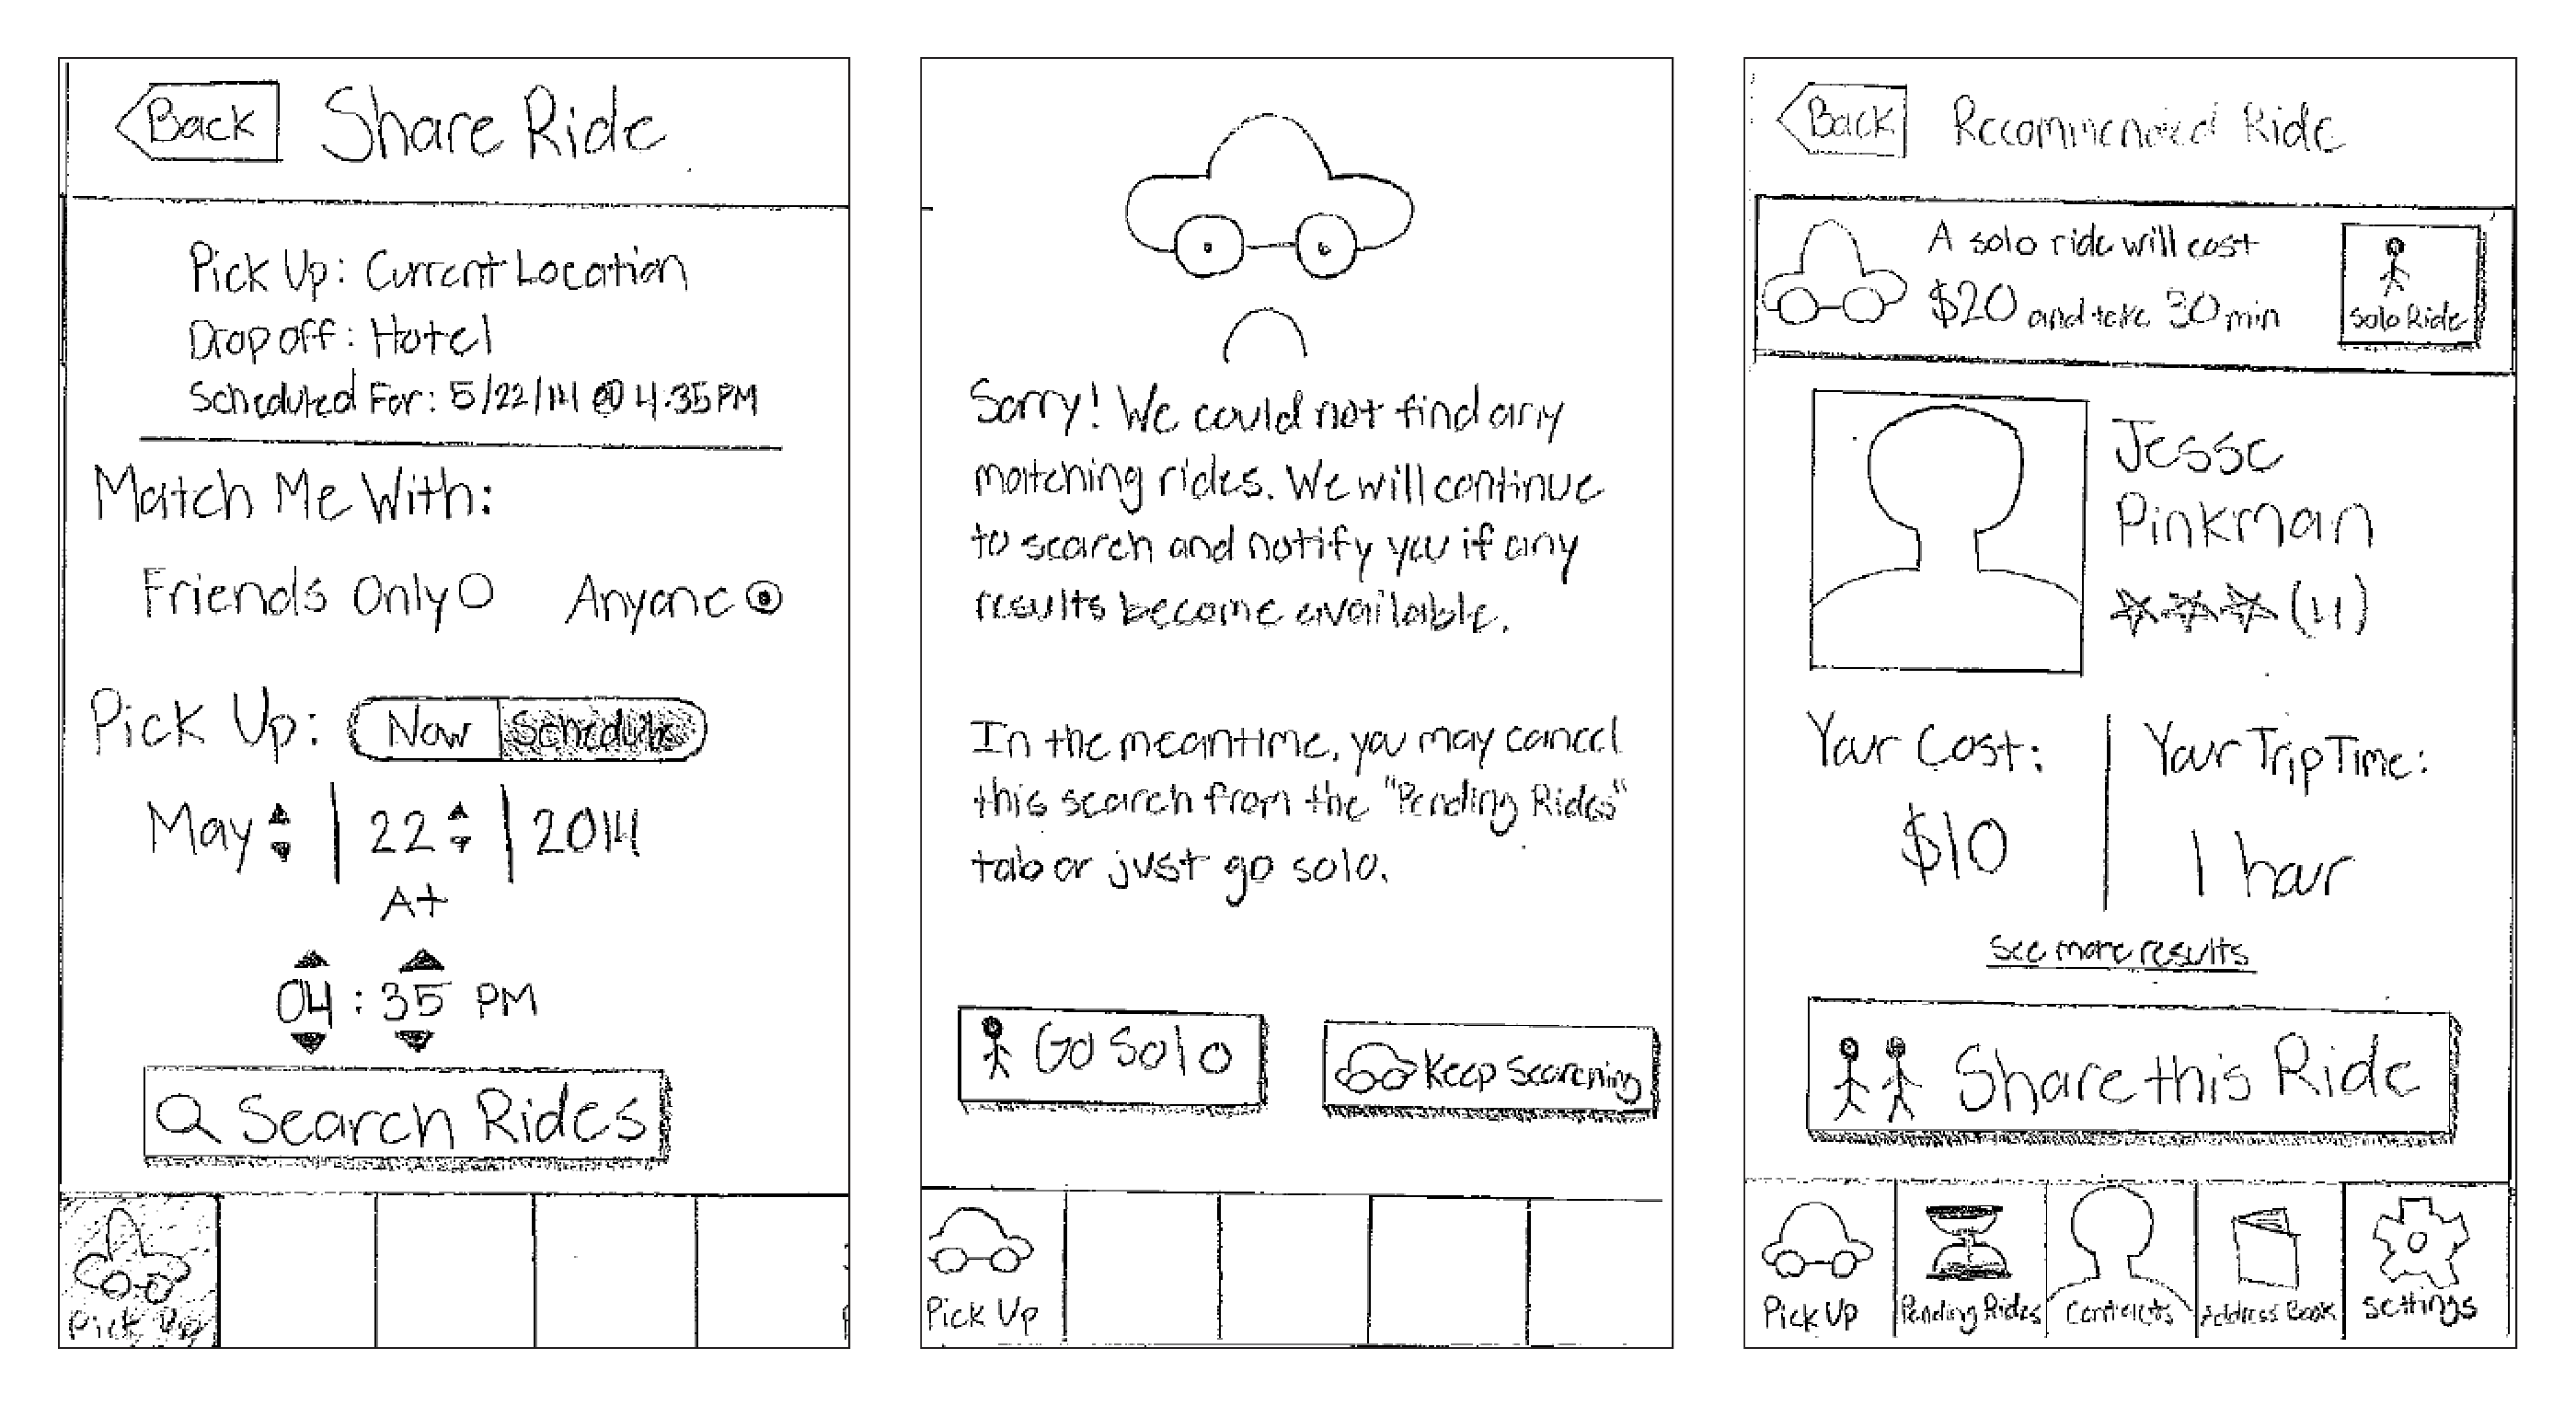 Back
Share Ride
Pick Up: Current Location
Drop off: Hotel
Scheduled For: 5/22/14 @ 4:35 PM
Match Me With:
Friends Only
Anyone
Pick Up:
Now
Schedule
May
22
2014
At
04 : 35 PM
Search Rides
Pick Up
Sorry! We could not find any
matching rides. We will continue
to search and notify you if any
results become available.
In the meantime, you may cancel
this search from the "Pending Rides"
tab or just go solo.
Go Solo
Keep Searching
Pick Up
Back
Recommended Ride
A solo ride will cost
$20 and take 30 min
Solo Ride
Jesse
Pinkman
(11)
Your Cost:
$10
Your Trip Time:
1 hour
See more results
Share this Ride
Pick Up
Pending Rides
Contacts
Address Book
Settings